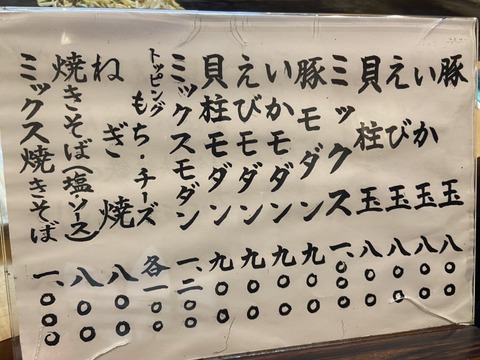 豚玉 八〇〇
いか玉 八〇〇
えび玉 八〇〇
貝柱玉 八〇〇
ミックス 一、〇〇〇
豚モダン 九〇〇
いかモダン 九〇〇
えびモダン 九〇〇
貝柱モダン 九〇〇
ミックスモダン 一、二〇〇
トッピング もち・チーズ 各一〇〇
ねぎ焼 八〇〇
焼きそば(塩・ソース) 八〇〇
ミックス焼きそば 一、〇〇〇